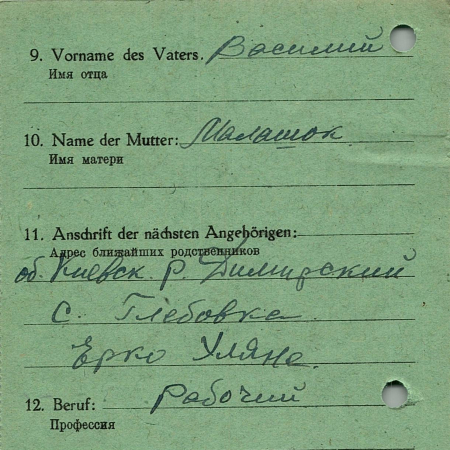 9. Vorname des Vaters. Василий
Имя отца
10. Name der Mutter: Малашок
Имя матери
11. Anschrift der nächsten Angehörigen:
Адрес ближайших родственников
об. Киевск. р. Димирский
с. Глебовка
Ерко Уляна.
12. Beruf: Рабочий
Профессия